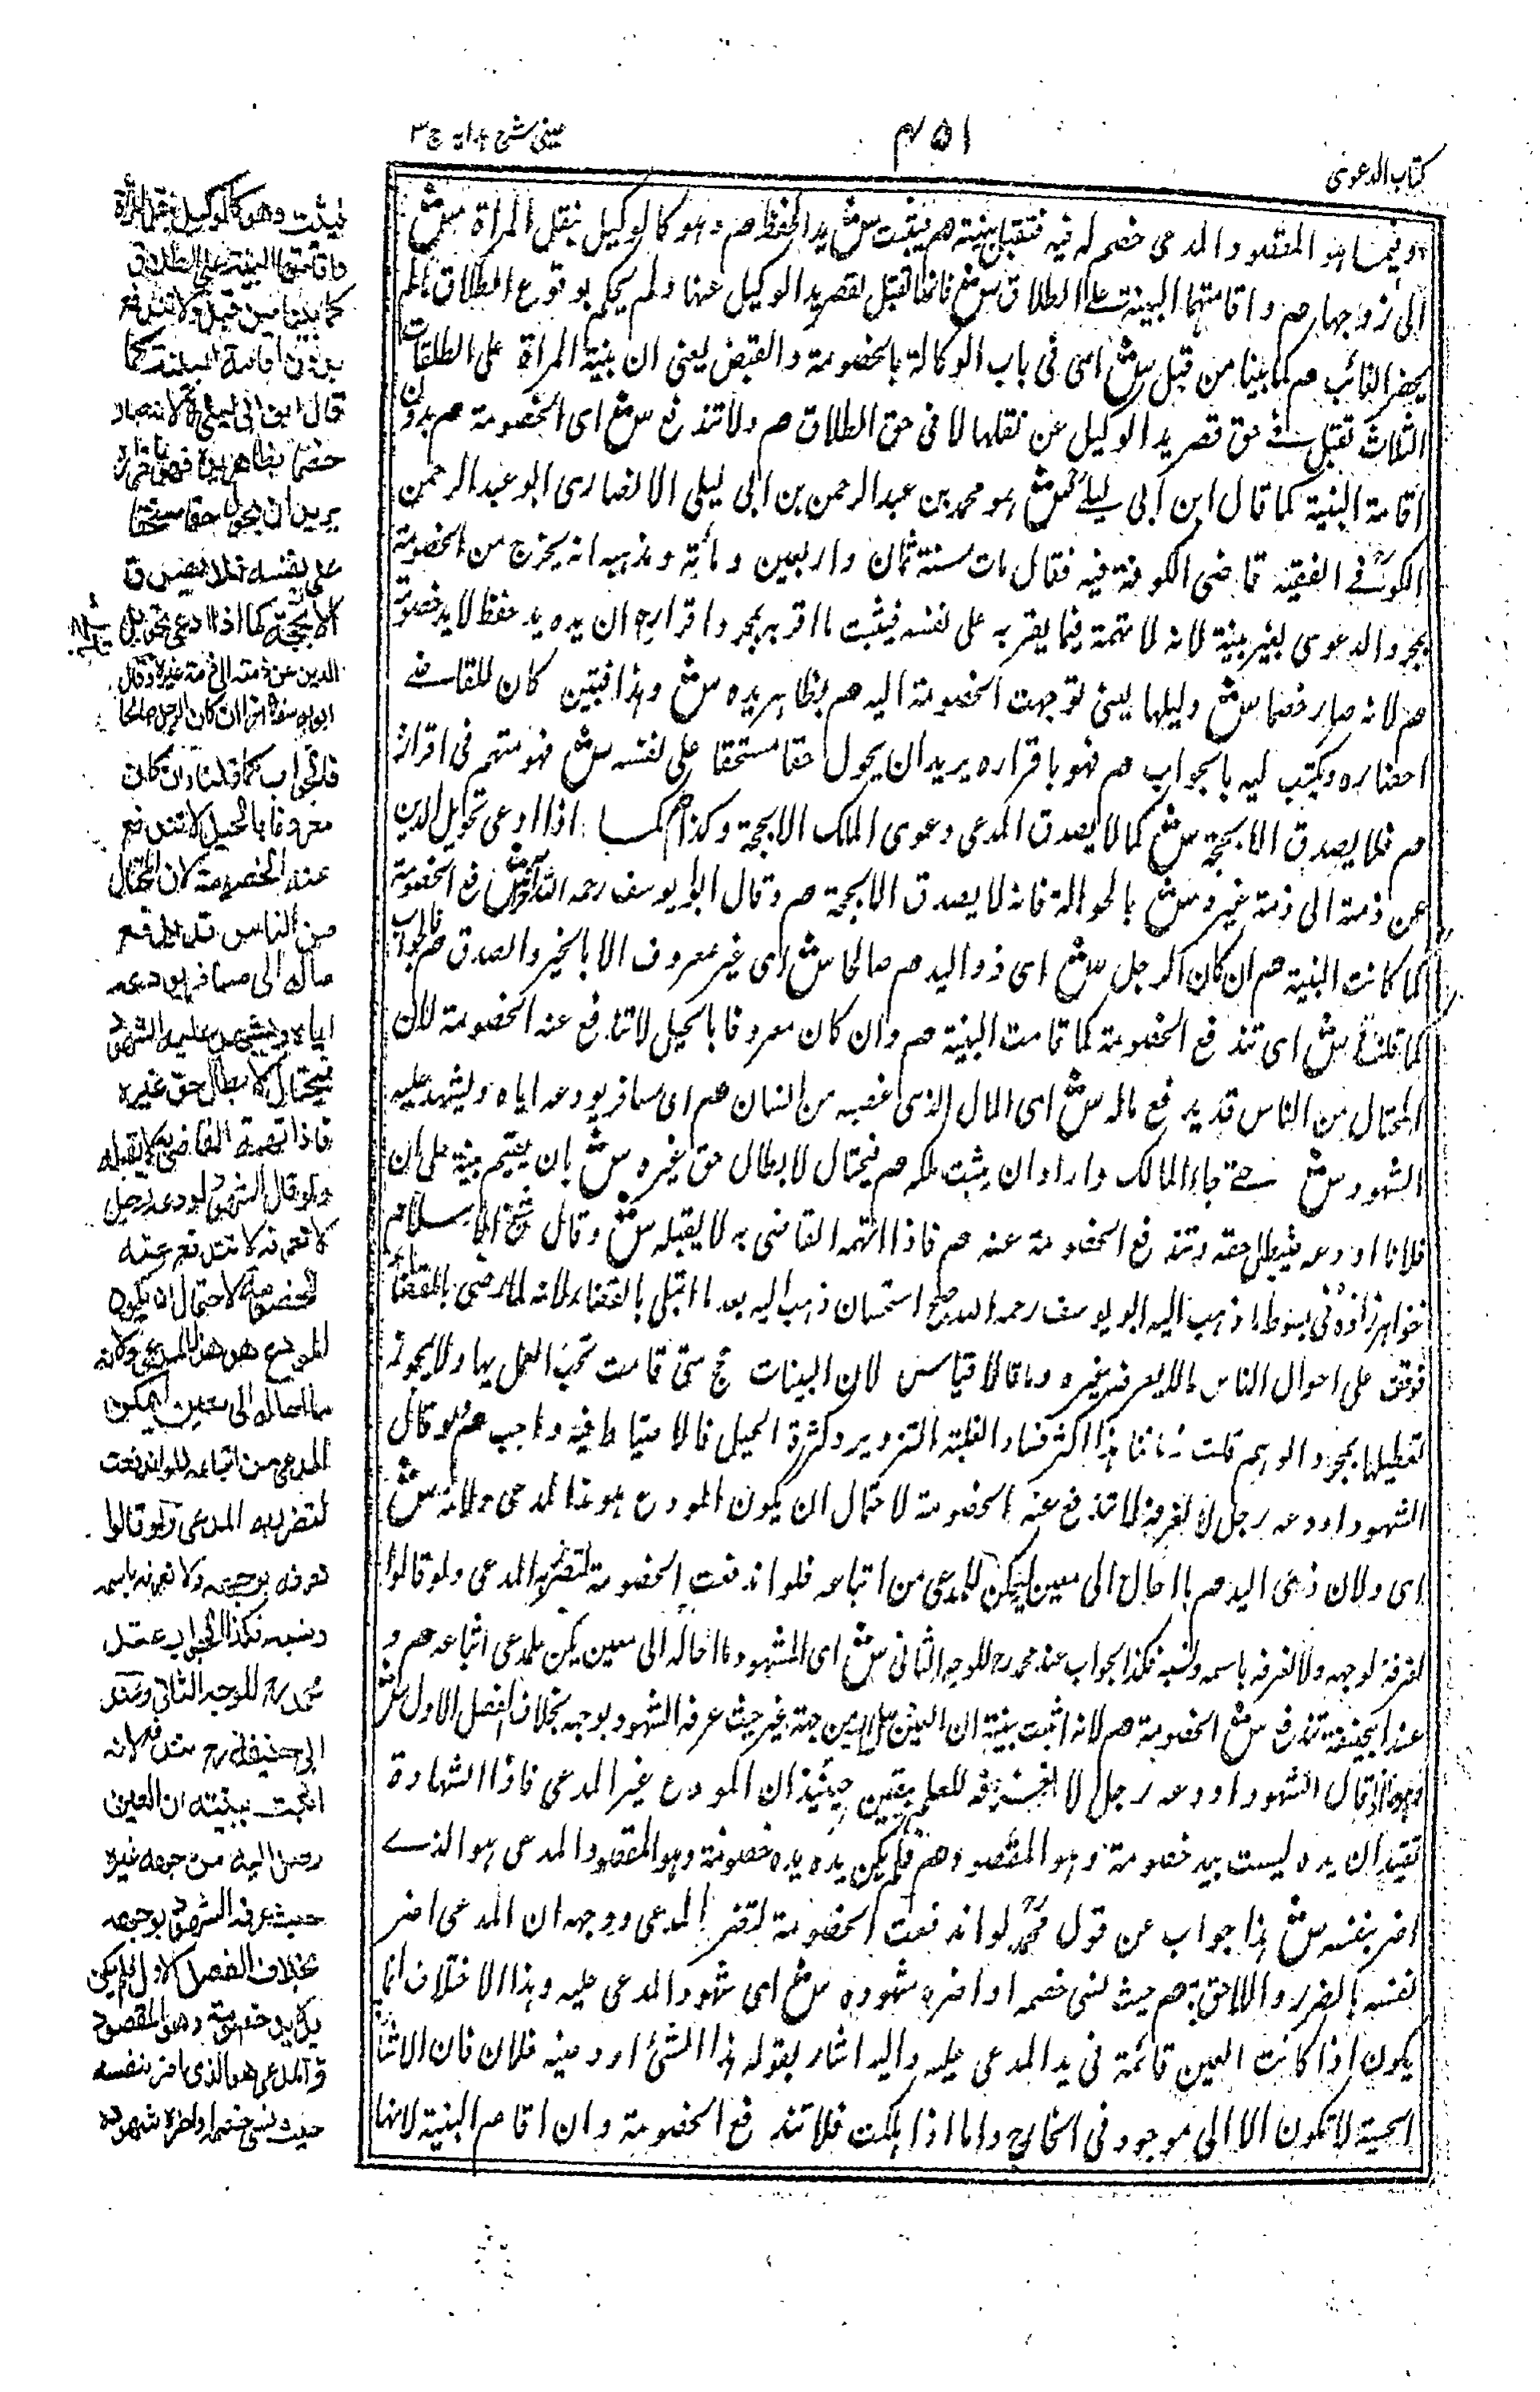 كتاب الدعوى
۴۵۱
عینی شرح ہدایہ ج۳
وفيما هو المقصود والمدعى خصم له فيه فتقبل بينته هم فيثبت ش يد الحفظ هم وهو كالوكيل بنقل المرأة ش
الى زوجها هم واقامتها البينة على الطلاق ش فانها تقبل لقصر يد الوكيل عنها ولم يحكم بوقوع الطلاق مالم
يحضر الغائب هم كما بينا من قبل ش اى فى باب الوكالة بالخصومة والقبض يعنى ان بينة المرأة على الطلقات
الثلاث تقبل فى حق قصر يد الوكيل عن نقلها لا فى حق الطلاق هم ولا تندفع ش اى الخصومة هم بدون
اقامة البينة كما قال ابن ابى ليلى ش هو محمد بن عبد الرحمن بن ابى ليلى الانصارى ابو عبد الرحمن
الكوفى الفقيه قاضى الكوفة فيه فقال مات سنة ثمان واربعين ومائة ومذهبه انه يخرج من الخصومة
بمجرد الدعوى بغير بينة لانه لا تهمة فيما يقر به على نفسه فيثبت ما اقر به بمجرد اقراره ان يده يد حفظ لا يد خصومة
هم لانه صار خصما ش دليلها يعنى توجهت الخصومة اليه هم بظاهر يده ش وهذا فيتبين كان للقاضى
احضاره ويكتب ليه بالجواب هم فهو باقراره يريد ان يحول حقا مستحقا على نفسه ش فهو متهم فى اقراره
هم فلا يصدق الا بحجة ش كما لا يصدق المدعى دعوى الملك الا بحجة وكذا هم كما اذا ادعى تحويل الدين
عن ذمته الى ذمة غيره ش بالحوالة فانه لا يصدق الا بحجة هم وقال ابو يوسف رحمه الله آخرا ش تندفع الخصومة
كما كانت البينة هم ان كان الرجل ش اى ذو اليد هم صالحا ش اى غير معروف الا بالخير والصدق هم فالجواب
كما قلنا ش اى تندفع الخصومة كما قامت البينة هم وان كان معروفا بالحيل لا تندفع عنه الخصومة لان
المحتال من الناس قد يدفع ماله ش اى المال الذى غصبه من انسان هم اى مسافر يودعه اياه ويشهد عليه
الشهود ش حتى جاء المالك واراد ان يثبت ملكه هم فيحتال لابطال حق غيره ش بان يقيم بينة على ان
فلانا اودعه فيبطل حقه وتندفع الخصومة عنه هم فاذا اتهمه القاضى به لا يقبله ش وقال شيخ الاسلام
خواهر زاده فى مبسوطه ما ذهب اليه ابو يوسف رحمه الله استحسان ذهب اليه بعد ما ابتلى بالقضاء لانه
فوقف على احوال الناس مالا يعرفه غيره وما قالا قياس لان البينات حجج متى قامت يجب العمل بها ولا يجوز
تعطيلها بمجرد الوهم قلت زماننا هذا اكثر فسادا لغلبة التزوير وكثرة الحيل فالاحتياط فيه واجب هم ولو قال
الشهود اودعه رجل لا نعرفه لا تندفع عنه الخصومة لاحتمال ان يكون المودع هو هذا المدعى ولانه ش
اى ولان ذى اليد هم ما احاله الى معين ليمكن للمدعى من اتباعه فلو اندفعت الخصومة لتضرر به المدعى ولو قالوا
نعرفه بوجهه ولا نعرفه باسمه ونسبه فكذا الجواب عند محمد رح للوجه الثانى ش اى الشهود ما احاله الى معين يمكن للمدعى اتباعه هم و
عند ابى حنيفة تندفع ش الخصومة هم لانه اثبت ببينة ان العين وصل اليه من جهة غيره حيث عرفه الشهود بوجهه بخلاف الفصل الاول ش
وهو ما اذا قال الشهود اودعه رجل لا نعرفه للعلم بيقين حينئذ ان المودع غير المدعى فاذا الشهادة
تفيد ان يده ليست بيد خصومة وهو المقصود هم فلم يكن يده يد خصومة وهو المقصود المدعى هو الذى
اضر بنفسه ش هذا جواب عن قول محمد لو اندفعت الخصومة لتضرر المدعى ووجهه ان المدعى اضر
نفسه بالضرر واللاحق به هم حيث نسى خصمه او اضره شهوده ش اى شهود المدعى عليه وهذا الاختلاف انما
يكون اذا كانت العين قائمة فى يد المدعى عليه واليه اشار بقوله هذا الشئ اودعنيه فلان فان الاشارة
الحسية لا تكون الا الى موجود فى الخارج واما اذا هلكت فلا تندفع الخصومة وان اقام البينة لانها
فيثبت وهو كالوكيل بنقل المرأة
واقامتها البينة على الطلاق
كما بينا من قبل ولا تندفع
بدون اقامة البينة كما
قال ابن ابى ليلى لانه صار
خصما بظاهر يده فهو باقراره
يريد ان يحول حقا مستحقا
على نفسه فلا يصدق
الا بحجة كما اذا ادعى تحويل
الدين عن ذمته الى ذمة غيره وقال
ابو يوسف آخرا ان كان الرجل صالحا
فالجواب كما قلنا وان كان
معروفا بالحيل لا تندفع
عنه الخصومة لان المحتال
من الناس قد يدفع
ماله الى مسافر يودعه
اياه ويشهد عليه الشهود
فيحتال لابطال حق غيره
فاذا اتهمه القاضى به لا يقبله
ولو قال الشهود اودعه رجل
لا نعرفه لا تندفع عنه
الخصومة لاحتمال ان يكون
المودع هو هذا المدعى ولانه
ما احاله الى معين ليمكن
المدعى من اتباعه فلو اندفعت
لتضرر به المدعى ولو قالوا
نعرفه بوجهه ولا نعرفه باسمه
ونسبه فكذا الجواب عند
محمد رح للوجه الثانى وعند
ابى حنيفة رح تندفع لانه
اثبت ببينته ان العين
وصل اليه من جهة غيره
حيث عرفه الشهود بوجهه
بخلاف الفصل الاول فلم يكن
يده يد خصومة وهو المقصود
والمدعى هو الذى اضر بنفسه
حيث نسى خصمه او اضره شهوده